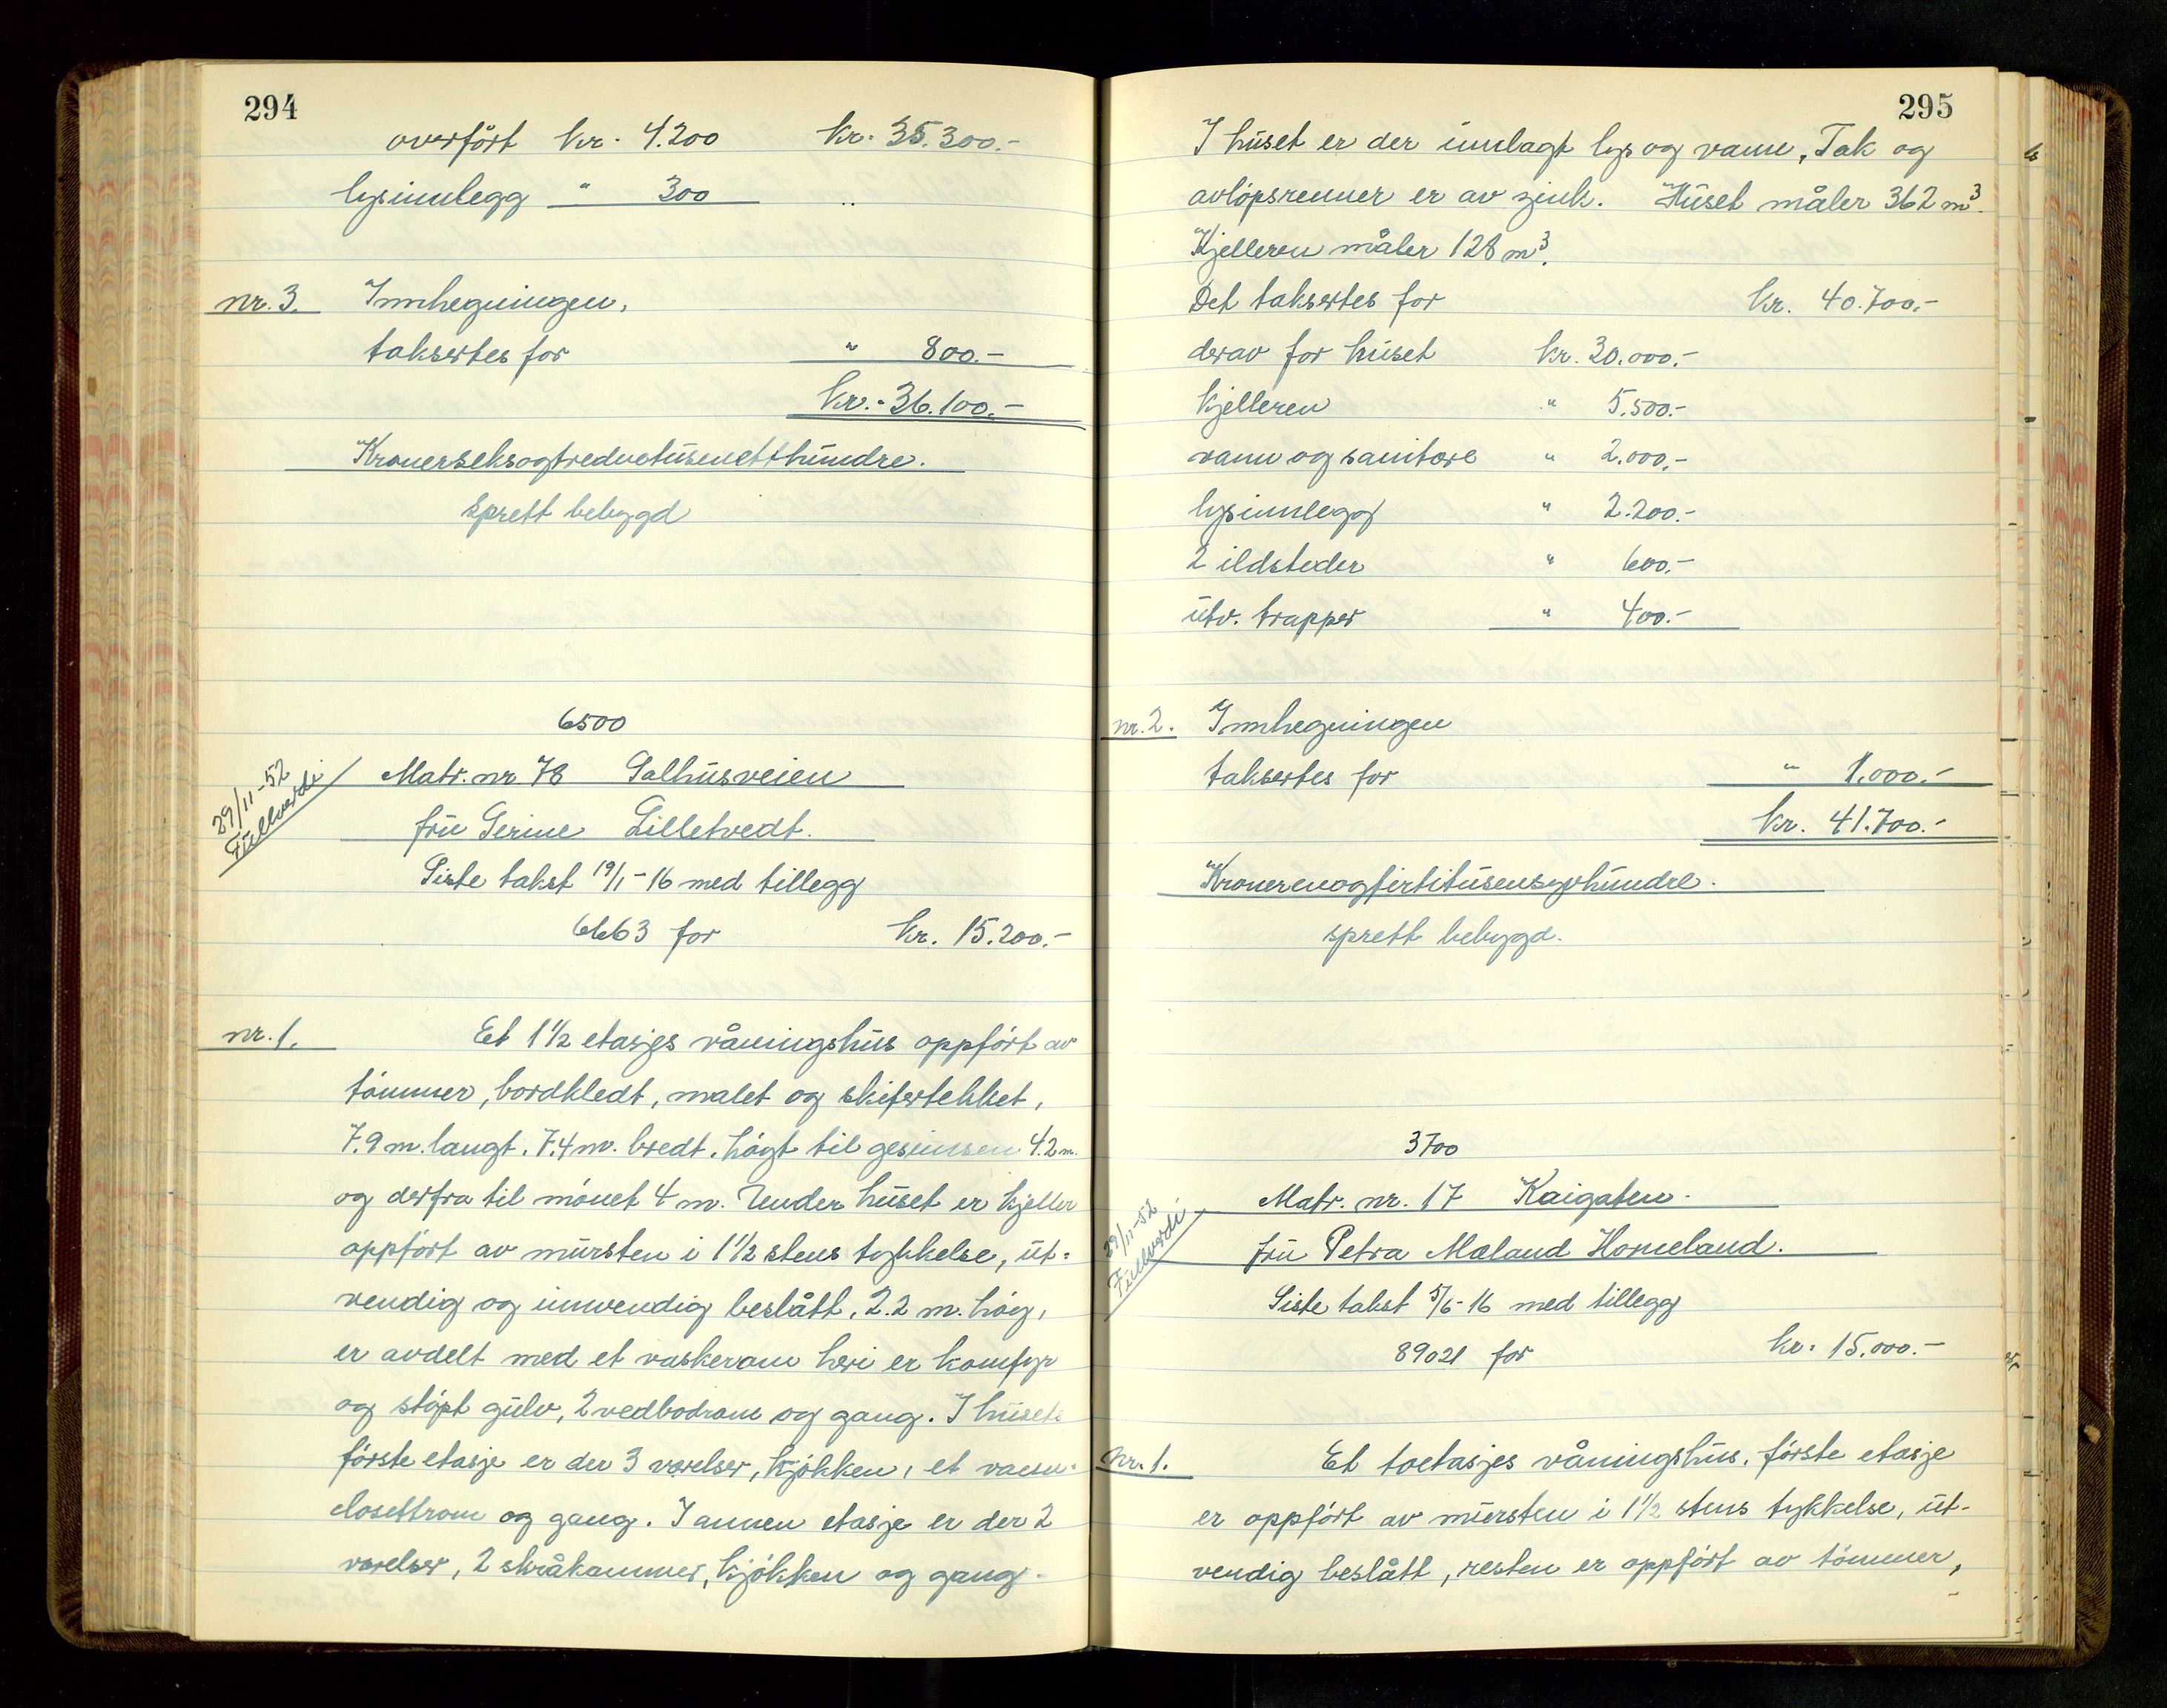 294
overført kr. 4.200 kr. 35.300.-
lysinnlegg " 300 ..
nr. 3. Innhegningen,
taksertes for " 800.-
kr. 36.100.-
Kronerseksogtredvetusenetthundre.
Sprett bebygd
6500
29/11-52
Fullverdi
Matr. nr 78 Salhusveien
fru Serine Lilletvedt.
Siste takst 19/1-16 med tillegg
6663 for kr. 15.200.-
nr. 1. Et 1 1/2 etasjes våningshus oppført av
tømmer, bordkledt, malet og skifertekket,
7.9 m. langt. 7.4 m. bredt. høgt til gesimsen 4.2 m.
og derfra til mønet 4 m. Under huset er kjeller
oppført av mursten i 1 1/2 stens tykkelse, ut-
vendig og innvendig beslått. 2.2 m. høg,
er avdelt med et vaskerom heri er komfyr
og støpt gulv, 2 vedbodrom og gang. I husets
første etasje er der 3 værelser, kjøkken, et vann-
closettrom og gang. I annen etasje er der 2
værelser, 2 skråkammer, kjøkken og gang.
295
I huset er der innlagt lys og vann. Tak og
avløpsrenner er av zink. Huset måler 362 m³.
Kjelleren måler 128 m³.
Det taksertes for kr. 40.700.-
derav for huset kr. 30.000.-
kjelleren " 5.500.-
vann og sanitære " 2.000.-
lysinnlegg " 2.200.-
2 ildsteder " 600.-
utv. trapper " 400.-
nr. 2. Innhegningen
taksertes for " 1.000.-
kr. 41.700.-
Kronerenogførtitusensyvhundre.
sprett bebygd.
3700
29/11-52
Fullverdi
Matr. nr. 17 Kaigaten.
fru Petra Mæland Homeland.
Siste takst 5/6-16 med tillegg
89021 for kr. 15.000.-
nr. 1. Et toetasjes våningshus, første etasje
er oppført av mursten i 1 1/2 stens tykkelse, ut-
vendig beslått, resten er oppført av tømmer,